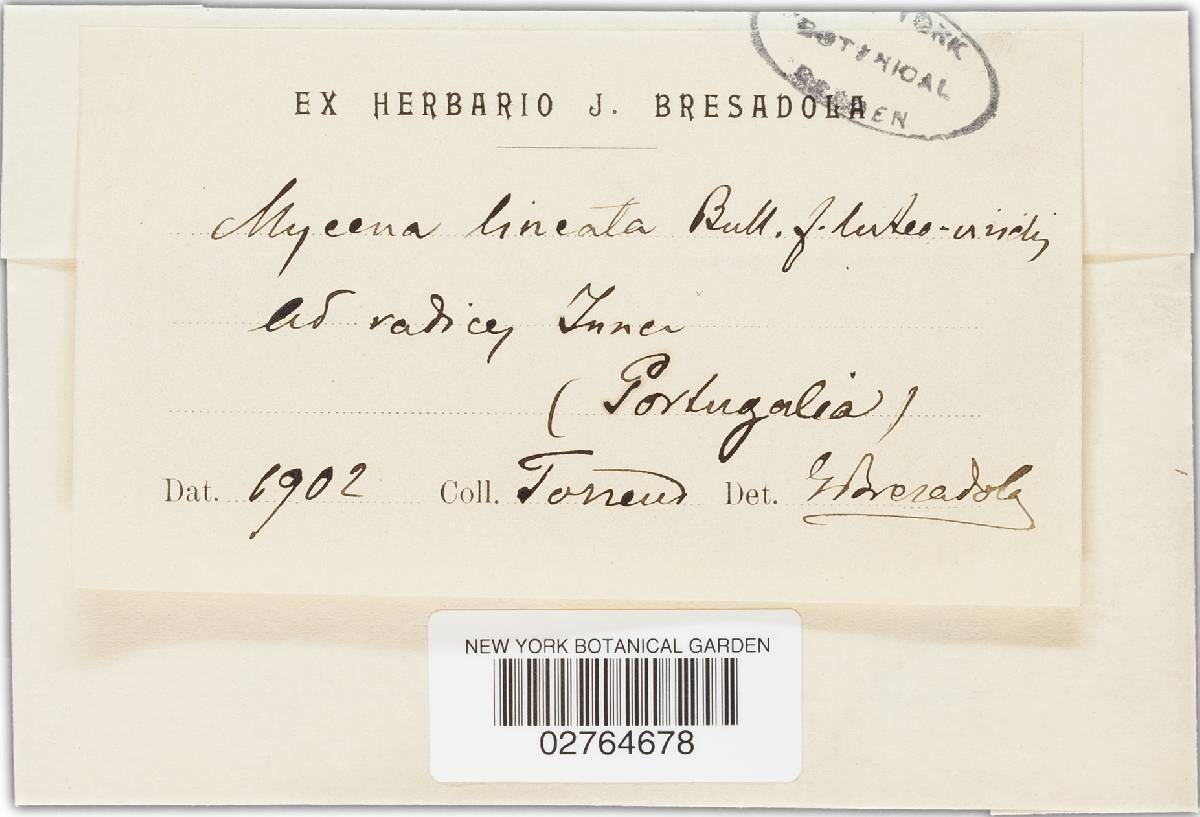 YORK
BOTANICAL
GARDEN
EX HERBARIO J. BRESADOLA
Mycena lineata Bull. f. luteo-viridis
Ad radices
(Portugalia)
Dat. 1902 Coll. Torrend Det. G Bresadola
NEW YORK BOTANICAL GARDEN
02764678